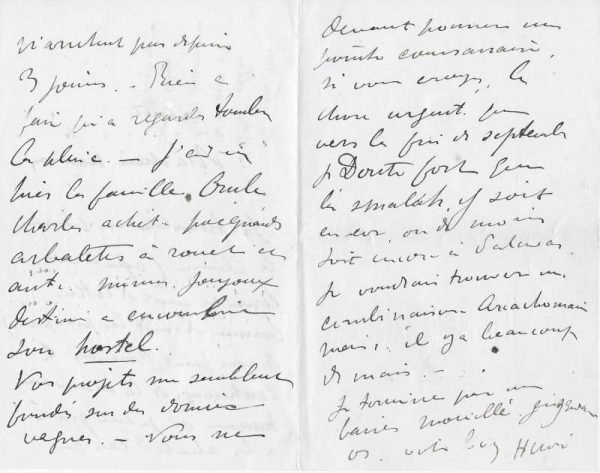 n'arrêtent pas depuis
3 jours. — Rien à
faire qu'à regarder tomber
la pluie. — J'ai vu
hier la famille. Oncle
Charles achète poignards
arbalètes à rouet et
autres menus joujoux
destinés à encombrer
son hostel.
Vos projets me semblent
fondés sur des données
vagues. — Vous ne
devant
si vous croyez la
chose urgente que
vers la fin de septembre
Je Doute fort que
la smalah y soit
encore ou du moins
soit encore à
Je voudrais trouver une
combinaison
mais, il y a beaucoup
de mais —
Je termine par un
baiser mouillé jusqu'aux
os. votre boy Henri